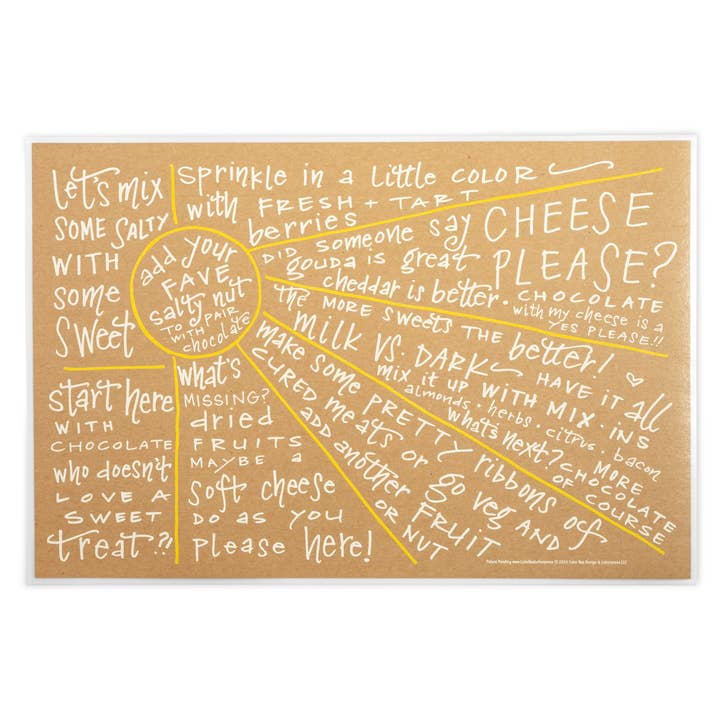 let's mix
SOME SALTY
WITH
some
sweet
sprinkle in a little COLOR
with FRESH + TART
berries
add your
FAVE
salty nut
TO PAIR
WITH
chocolate
DID someone say
CHEESE
PLEASE?
gouda is great
cheddar is better.
CHOCOLATE
with my cheese is a
YES PLEASE!!
the MORE SWEETS THE better!
milk vs. DARK HAVE IT all
mix it up WITH MIX-INS
almonds · herbs · citrus · bacon
what's next? MORE
CHOCOLATE
OF COURSE
make some PRETTY ribbons of
CURED meats or go veg AND
add another FRUIT
OR NUT
start here
WITH
CHOCOLATE
who doesn't
LOVE A
SWEET
treat?!
what's
MISSING?
dried
FRUITS
MAYBE a
soft cheese
DO AS YOU
please here!